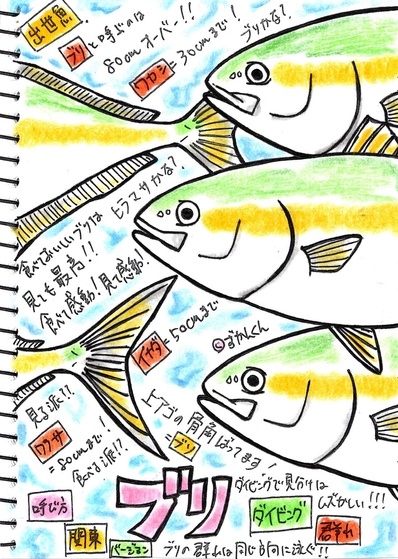 出世魚
ブリと呼ぶのは
80cmオーバー!!
ワカシ=30cmまで!
ブリかな?
ヒラマサかな?
食べておいしいブリは
見ても最高!!
食べて感動!見て感動!
イナダ=50cmまで
©ずかんくん
見る派!?
ワラサ
=80cmまで!
食べる派!?
上アゴの骨角ばってます!
=ブリ
ブリ
ダイビングで見分けは
むずかしい!!!
呼び方
関東
バージョン
ダイビング
群れ
ブリの群れは同じ方向に泳ぐ!!